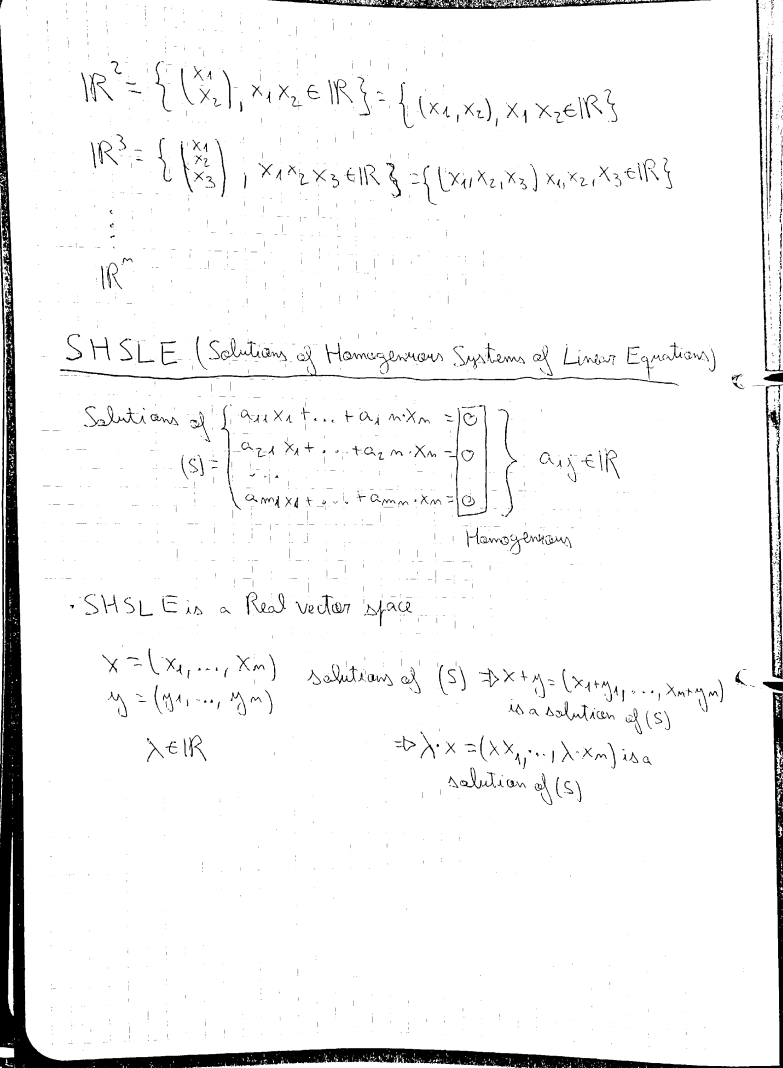 ℝ² = { (x1 x2), x1 x2 ∈ ℝ } = { (x1, x2), x1 x2 ∈ ℝ }
ℝ³ = { (x1 x2 x3), x1 x2 x3 ∈ ℝ } = { (x1, x2, x3) x1, x2, x3 ∈ ℝ }
⋮
ℝⁿ
SHSLE (Solutions of Homogenous Systems of Linear Equations)
Solutions of { a11 x1 + ... + a1 n · xn = 0
(S) = a21 x1 + ... + a2 n · xn = 0 } aij ∈ ℝ
...
am1 x1 + ... + amn · xn = 0
Homogenous
· SHSLE is a Real vector space
x = (x1, ..., xn)
y = (y1, ..., yn) solutions of (S) ⇒ x + y = (x1+y1, ..., xn+yn)
is a solution of (S)
λ ∈ ℝ ⇒ λ · x = (λx1, ..., λ·xn) is a
solution of (S)